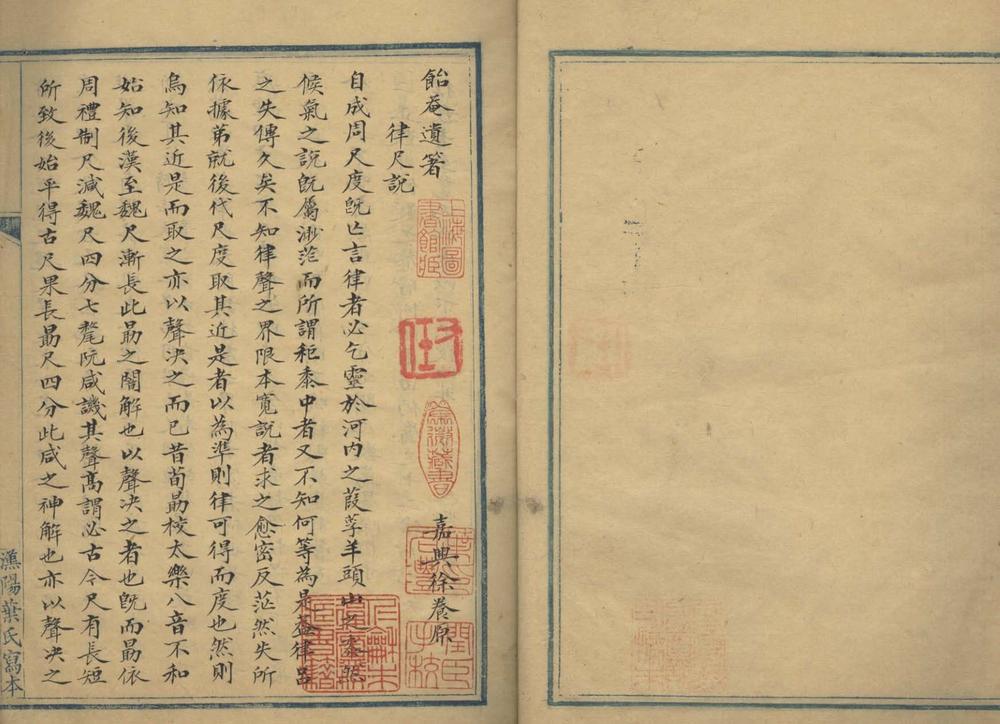 飴菴遺箸　嘉興徐養原
律尺說
自成周尺度旣亡言律者必乞靈於河内之葭莩羊頭山之黍然
候氣之說旣屬渺茫而所謂秬黍中者又不知何等為是蓋律呂
之失傳久矣不知律聲之界限本寬說者求之愈密反茫然失所
依據弟就後代尺度取其近是者以為準則律可得而度也然則
烏知其近是而取之亦以聲决之而已昔荀勗校太樂八音不和
始知後漢至魏尺漸長此勗之闇解也以聲决之者也旣而勗依
周禮制尺減魏尺四分七氂阮咸譏其聲髙謂必古今尺有長短
所致後始平得古尺果長勗尺四分此咸之神解也亦以聲决之
漁陽葉氏寫本
上海圖書館臧